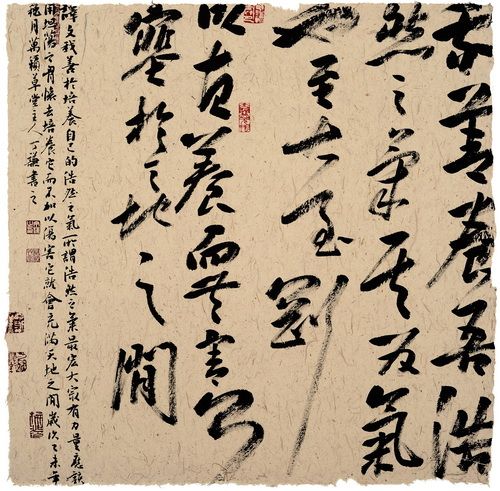 我善養吾浩
然之氣其为氣
也至大至剛
以直養而無害則
塞於天地之間
譯文我善於培養自己的浩然之氣所謂浩然之氣最宏大最有力量應該
用坦蕩之胸懷去培養它而不加以傷害它就會充滿天地之間歲次乙未年
月萬籟草堂主人丁謙書之